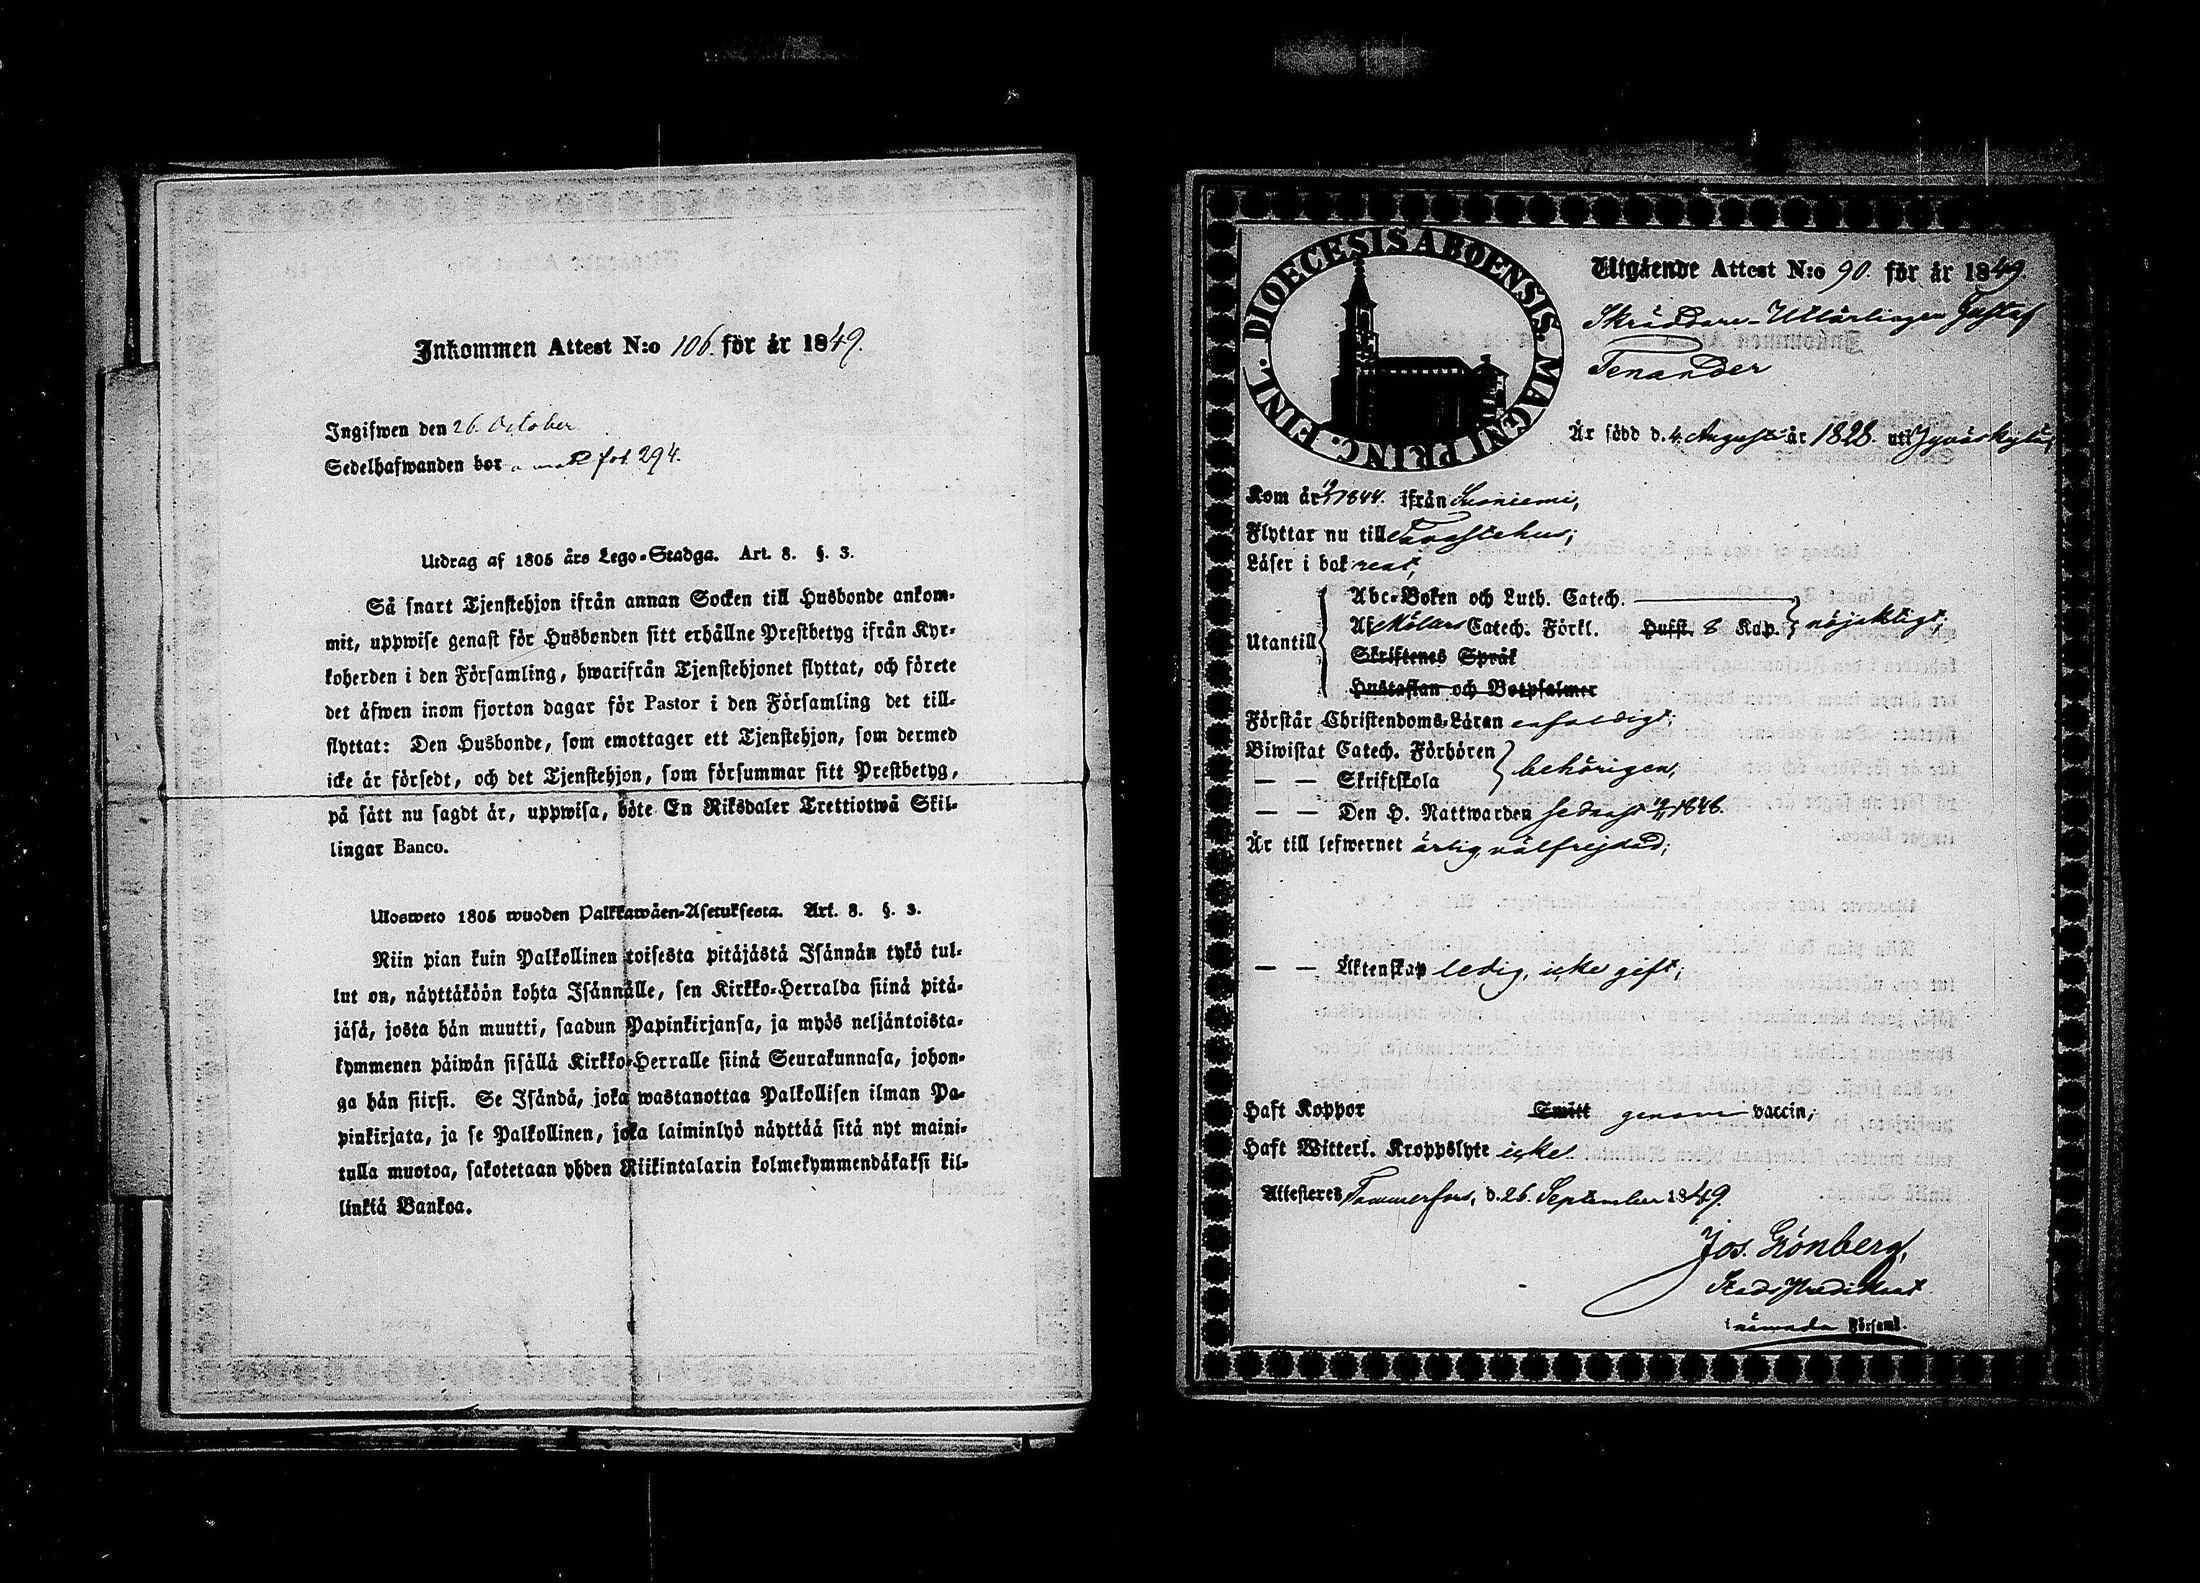 Inkommen Attest N:o 106. för år 1849.
Ingifwen den 26. October
Sedelhafwanden bor fol. 294.
Utdrag af 1805 års Lego-Stadga. Art. 8. §. 3.
Så snart Tjenstehjon ifrån annan Socken till Husbonde ankom-
mit, uppwise genast för Husbonden sitt erhållne Prestbetyg ifrån Kyr-
koherden i den Församling, hwarifrån Tjenstehjonet flyttat, och förete
det äfwen inom fjorton dagar för Pastor i den Församling det till-
flyttat: Den Husbonde, som emottager ett Tjenstehjon, som dermed
icke är försedt, och det Tjenstehjon, som försummar sitt Prestbetyg,
på sätt nu sagdt är, uppwisa, böte En Riksdaler Trettiotwå Skil-
lingar Banco.
Ulosweto 1805 wuoden Palkkawäen-Asetuksesta. Art. 8. §. 3.
Niin pian kuin Palkollinen toisesta pitäjästä Isännän tykö tul-
lut on, näyttäköön kohta Isännälle, sen Kirkko-Herralda siinä pitä-
jäsä, josta hän muutti, saadun Papinkirjansa, ja myös neljäntoista-
kymmenen päiwän sisällä Kirkko-Herralle siinä Seurakunnasa, johon-
ga hän siirsi. Se Isändä, joka wastanottaa Palkollisen ilman Pa-
pinkirjata, ja se Palkollinen, joka laiminlyö näyttää sitä nyt maini-
tulla muotoa, sakotetaan yhden Riikintalarin kolmekymmendäkaksi kil-
linkiä Bankoa.
FINL. DIOECESIS ABOENSIS. MAGNI PRINC.
Utgående Attest N:o 90. för år 1849.
Skräddare-Utlärlingen Gustaf
Tenander
Är född d. 4. Augusti år 1828. uti Jyväskylä,
Kom år 1844. ifrån Suoniemi,
Flyttar nu till Tavastehus;
Läser i bok rent,
Utantill
Abc-Boken och Luth. Catech.
Af Möllers Catech. Förkl. Hufst. 8 Kap. nöjaktigt;
Skriftenes Språk
Hustaflan och Botpsalmer
Förstår Christendoms-Läran enfaldigt;
Biwistat Catech. Förhören
— — Skriftskola behörigen,
— — Den H. Nattwarden sednast 1848.
Är till lefwernet ärlig, välfrejdad;
— — Äktenskap ledig, icke gift;
Haft Koppor Smitt genom vaccin;
Haft Witterl. Kroppslyte icke
Attesteres Tammerfors, d. 26. September 1849.
Jos. Grönberg,
Stads Predikant
i nämnda Församl.